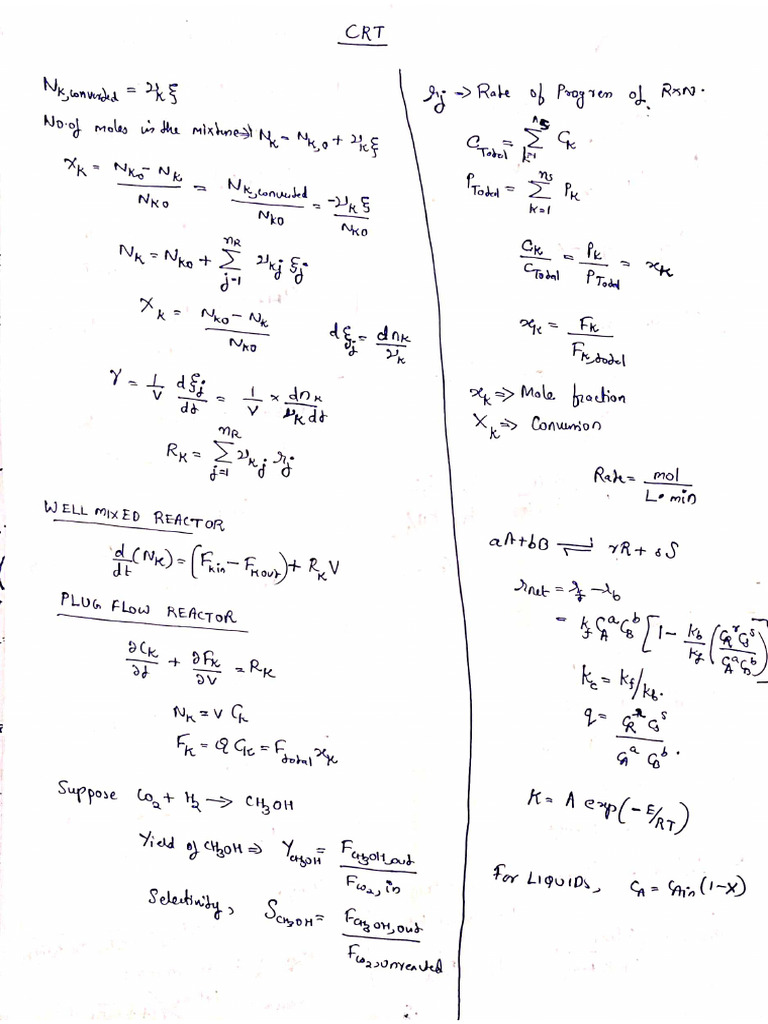 CRT
N_{k,converted} = ν_k ξ
No. of moles in the mixture ⇒ N_k = N_{k,0} + ν_k ξ
X_k = (N_{k0} - N_k)/N_{k0} = N_{k,converted}/N_{k0} = -ν_k ξ/N_{k0}
N_k = N_{k0} + Σ_{j=1}^{n_R} ν_{kj} ξ_j
X_k = (N_{k0} - N_k)/N_{k0}    dξ_j = dn_k/ν_k
r = (1/V) dξ_j/dt = (1/V) × dn_k/(ν_k dt)
R_k = Σ_{j=1}^{n_R} ν_{kj} r_j
WELL MIXED REACTOR
d/dt (N_k) = (F_{kin} - F_{kout}) + R_k V
PLUG FLOW REACTOR
∂C_k/∂t + ∂F_k/∂V = R_k
N_k = V C_k
F_k = Q C_k = F_{total} x_k
Suppose CO_2 + H_2 → CH_3OH
Yield of CH_3OH ⇒ Y_{CH_3OH} = F_{CH_3OH,out}/F_{CO_2,in}
Selectivity, S_{CH_3OH} = F_{CH_3OH,out}/F_{CO_2,unreacted}
r_j → Rate of Progress of RXN.
C_{Total} = Σ_{k=1}^{n_s} C_k
P_{Total} = Σ_{k=1}^{n_s} P_k
C_k/C_{Total} = P_k/P_{Total} = x_k
x_k = F_k/F_{k,total}
x_k ⇒ Mole fraction
X_k ⇒ Conversion
Rate = mol/(L·min)
aA + bB ⇌ rR + sS
r_{net} = r_f - r_b
= k_f C_A^a C_B^b [1 - (k_b/k_f)(C_R^r C_S^s/(C_A^a C_B^b))]
k_c = k_f/k_b.
q = C_R^r C_S^s/(C_A^a C_B^b).
K = A exp(-E/RT)
For LIQUIDS, C_A = C_{Ain}(1-X)